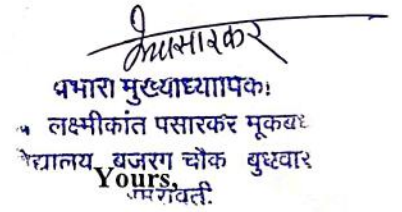 प्रभारी मुख्याध्यापिका
लक्ष्मीकांत पसारकर मूकबध
विद्यालय बजरग चौक बुधवार
Yours,
अमरावती.